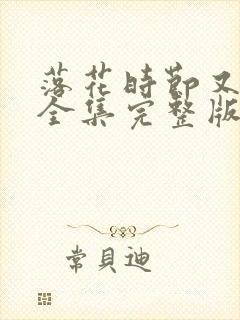 落花時節又
全集完整版
常貝迪